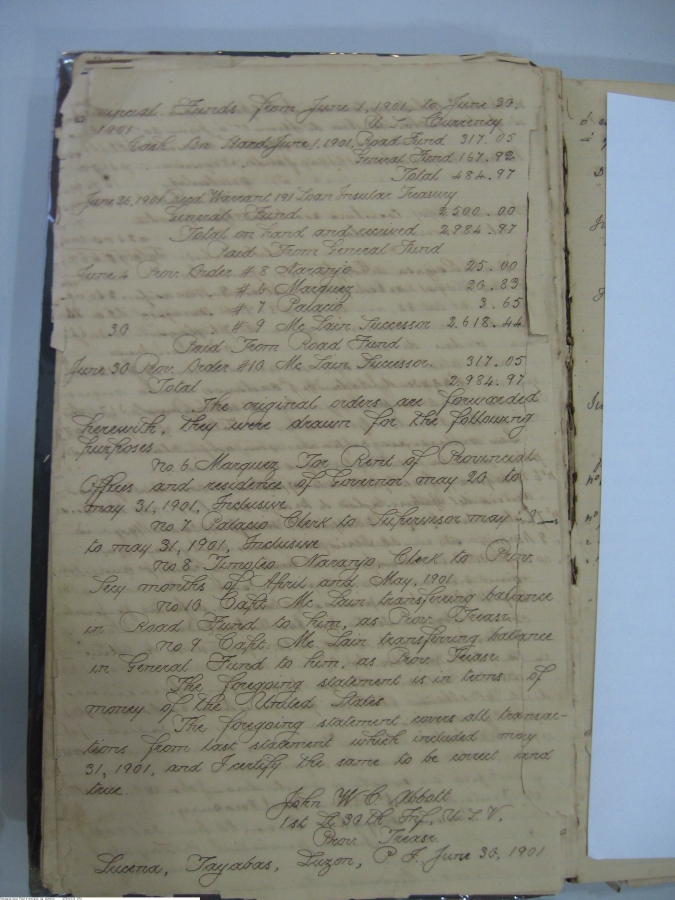 incial Funds from June 1, 1901, to June 30,
1901 U.S. Currency
Cash On Hand June 1, 1901, Road Fund 317.05
General Fund 167.92
Total 484.97
June 26, 1901 Recd Warrant 191 Loan Insular Treasury
General Fund 2500.00
Total on hand and received 2984.97
Paid From General Fund
June 4 Prov. Order #8 Naranjo 25.00
" #6 Marquez 20.83
" #7 Palacio 3.65
30 #9 Mc Lain Successor 2.618.44
Paid From Road Fund
June 30 Prov. Order #10 Mc Lain Successor. 317.05
Total 2,984.97
The original orders are forwarded
herewith, they were drawn for the following
purposes
No 6 Marquez For Rent of Provincial
Offices and residence of Governor may 20 to
may 31, 1901, Inclusive
No 7 Palacio Clerk to Supervisor may 8
to may 31, 1901, Inclusive
No 8 Timoteo Naranjo, Clerk to Prov.
Secy months of April and May, 1901
No 10 Capt Mc Lain transferring balance
in Road Fund to him, as Prov. Treasr.
No. 9 Capt. Mc Lain transferring balance
in General Fund to him, as Prov. Treasr.
The foregoing statement is in terms of
money of the United States
The foregoing statement covers all transac-
tions from last statement which included may
31, 1901, and I certify the same to be correct and
true.
John W. C. Abbott
1st Lt 30th Inf. U.S.V.
Prov. Treasr.
Lucena, Tayabas, Luzon, P I. June 30, 1901